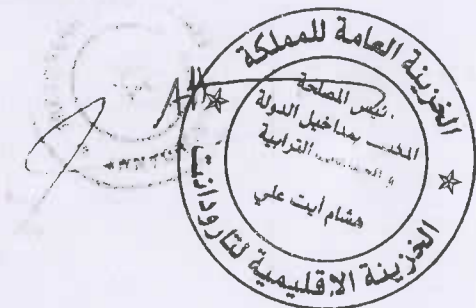 الخزينة العامة للمملكة
رئيس المصلحة
المكلف بمداخيل الدولة
و الجماعات الترابية
هشام أيت علي
الخزينة الإقليمية لتارودانت